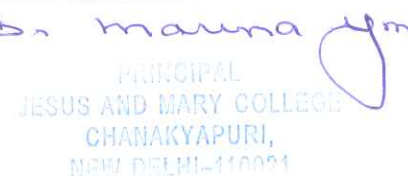 Dr Marina
PRINCIPAL
JESUS AND MARY COLLEGE
CHANAKYAPURI,
NEW DELHI-110021